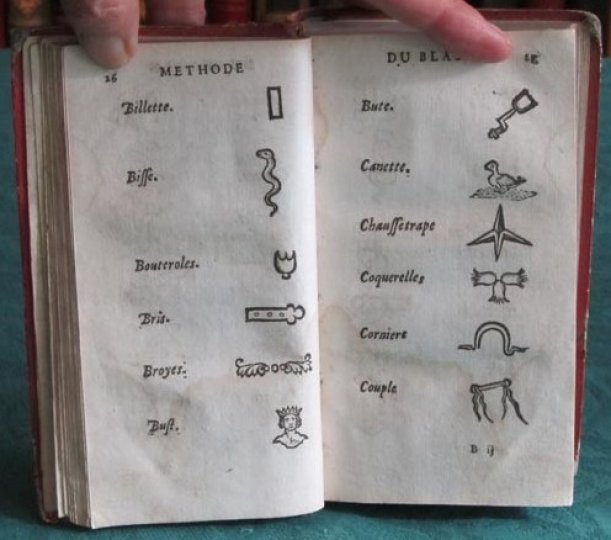 26 METHODE
Billette.
Bisse.
Bouteroles.
Bris.
Broyes.
Bust.
DU BLA
Bute.
Canette.
Chaussetrape
Coquerelles
Corniere
Couple
B ij